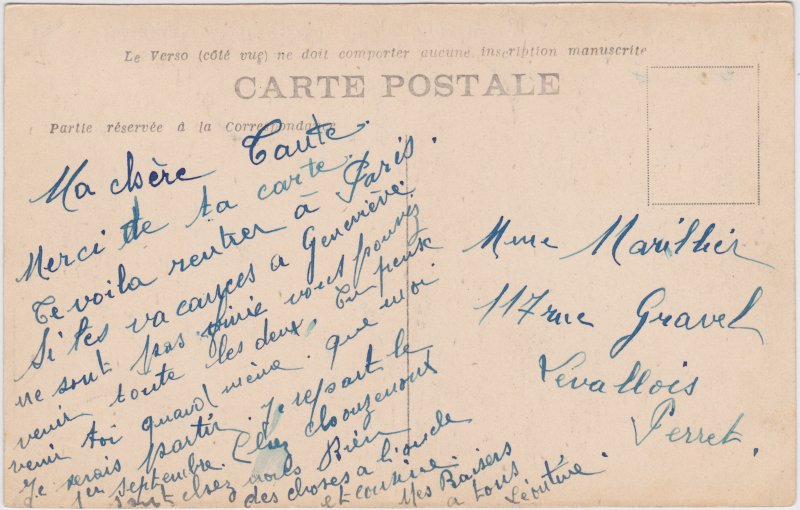 Le Verso (côté vue) ne doit comporter aucune inscription manuscrite
CARTE POSTALE
Partie réservée à la Correspondance
Ma chère Tante.
Merci de ta carte.
Te voila rentrer à Paris.
Si tes vacances a Geneviève
ne sont pas finie vous pouvez
venir toute les deux, Tu peux
venir toi quand même que moi
Je serais partir. je repart le
1er septembre. Chez
chez Bien
des choses a l'oncle
et cousine. Mes Baisers
a tous
Mme Marillier
117 rue Gravel
Levallois
Perret.